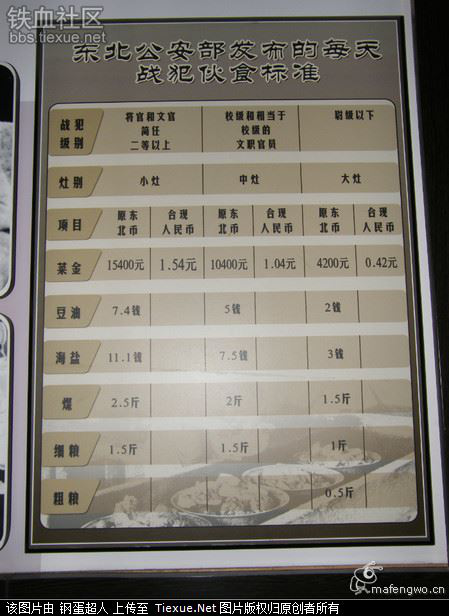 铁血社区
bbs.tiexue.net
东北公安部发布的每天
战犯伙食标准
战犯
级别
将官和文官
简任
二等以上
校级和相当于
校级的
文职官员
尉级以下
灶别 小灶 中灶 大灶
项目 原东北币 合现人民币 原东北币 合现人民币 原东北币 合现人民币
菜金 15400元 1.54元 10400元 1.04元 4200元 0.42元
豆油 7.4钱 5钱 2钱
海盐 11.1钱 7.5钱 3钱
煤 2.5斤 2斤 1.5斤
细粮 1.5斤 1.5斤 1斤
粗粮 0.5斤
蚂蜂窝
mafengwo.cn
该图片由 钢蛋超人 上传至 Tiexue.Net 图片版权归原创者所有